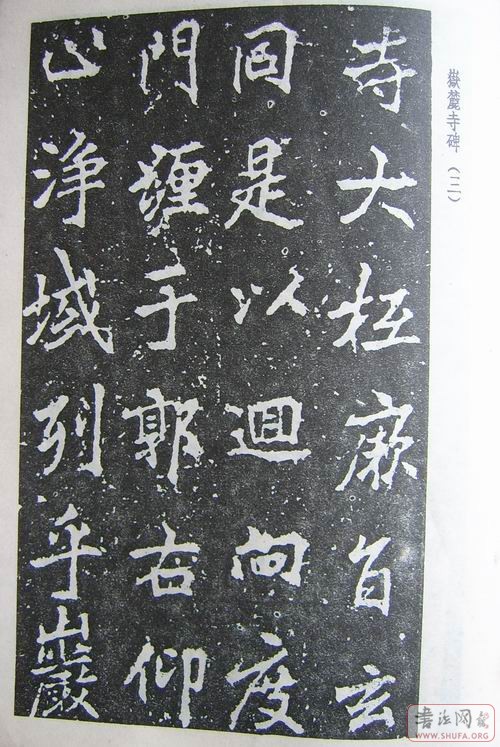 嶽麓寺碑（三）
寺大抵厥旨玄
同是以迴向度
門于郭右仰
止浄域列乎巖
書法网
WWW.SHUFA.ORG